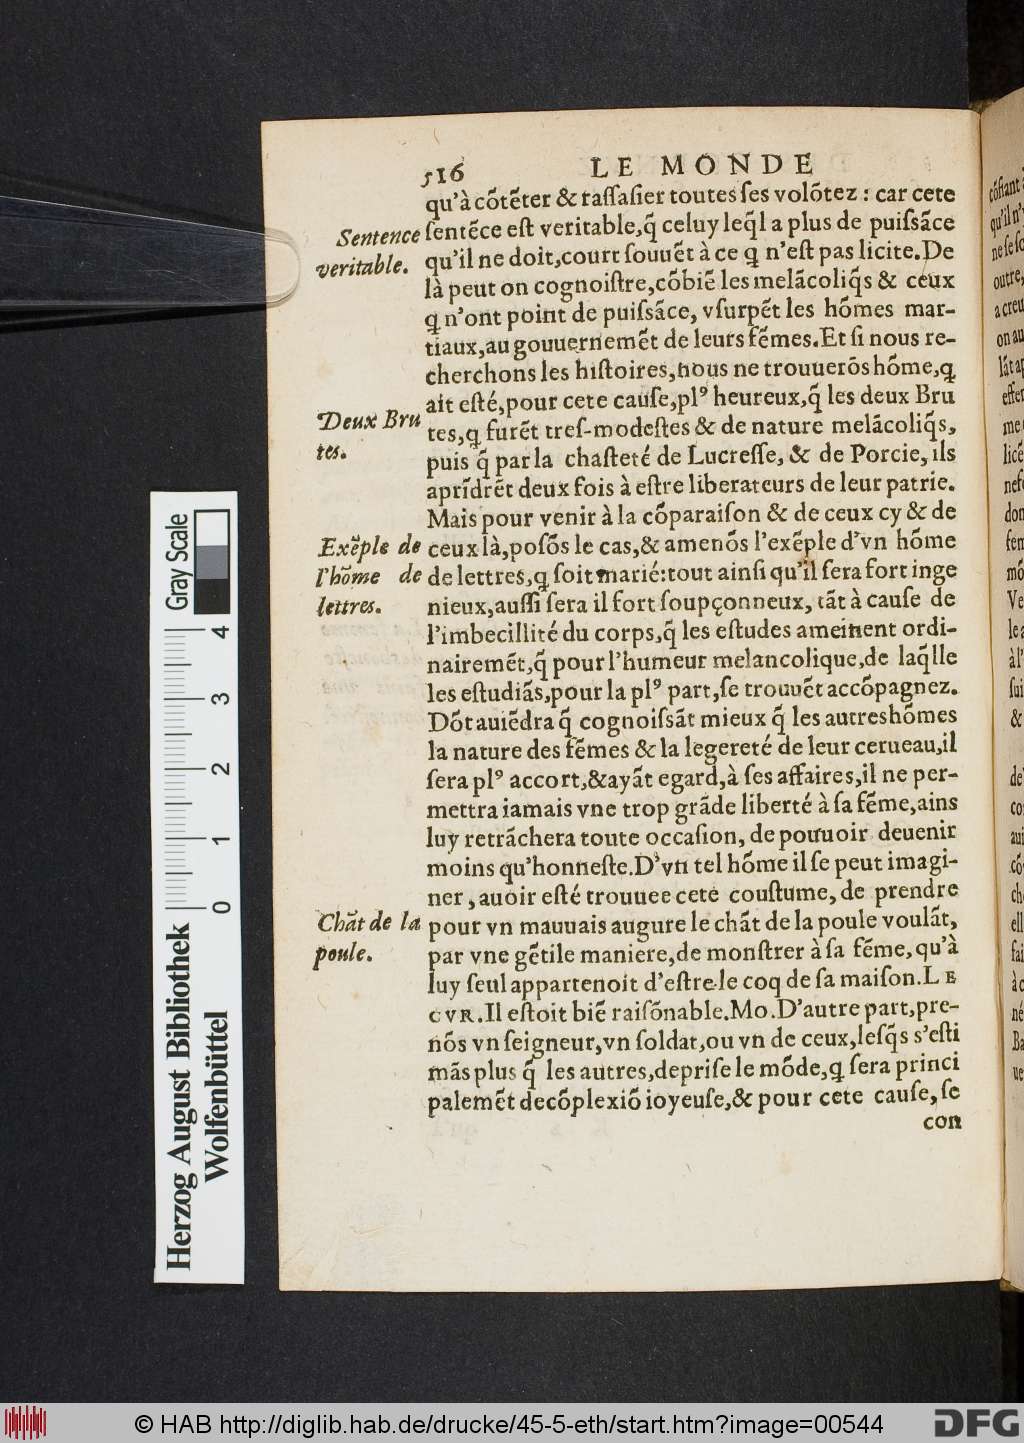 516 LE MONDE
qu'à cõtẽter & raſſaſier toutes ſes volõtez : car cete
Sentence veritable.
ſentẽce eſt veritable,q̃ celuy leq̃l a plus de puiſsãce
qu'il ne doit,court ſouuẽt à ce ꝗ n'eſt pas licite.De
là peut on cognoiſtre,cõbiẽ les melãcoliq̃s & ceux
ꝗ n'ont point de puiſsãce, vſurpẽt les hõmes mar-
tiaux,au gouuernemẽt de leurs fẽmes.Et ſi nous re-
cherchons les hiſtoires,nous ne trouuerõs hõme,ꝗ
ait eſté,pour cete cauſe,plꝰ heureux,q̃ les deux Bru
Deux Bru
tes.
tes,ꝗ furẽt treſ-modeſtes & de nature melãcoliq̃s,
puis q̃ par la chaſteté de Lucreſſe, & de Porcie, ils
aprĩdrẽt deux fois à eſtre liberateurs de leur patrie.
Mais pour venir à la cõparaiſon & de ceux cy & de
Exẽple de
l'hõme de
lettres.
ceux là,poſõs le cas,& amenõs l'exẽple d'vn hõme
de lettres,ꝗ ſoit marié:tout ainſi qu'il ſera fort inge
nieux,auſſi ſera il fort ſoupçonneux, tãt à cauſe de
l'imbecillité du corps,q̃ les eſtudes ameinent ordi-
nairemẽt,q̃ pour l'humeur melancolique,de laq̃lle
les eſtudiãs,pour la plꝰ part,ſe trouuẽt accõpagnez.
Dõt auiẽdra q̃ cognoiſsãt mieux q̃ les autres hõmes
la nature des fẽmes & la legereté de leur cerueau,il
ſera plꝰ accort,&ayãt egard,à ſes affaires,il ne per-
mettra iamais vne trop grãde liberté à ſa fẽme,ains
luy retrãchera toute occaſion, de pouuoir deuenir
moins qu'honneſte.D'vn tel hõme il ſe peut imagi-
ner, auoir eſté trouuee cete couſtume, de prendre
Chãt de la
poule.
pour vn mauuais augure le chãt de la poule voulãt,
par vne gẽtile maniere,de monſtrer à ſa fẽme, qu'à
luy ſeul appartenoit d'eſtre le coq de ſa maiſon.LE
CVR.Il eſtoit biẽ raiſõnable.Mo.D'autre part,pre-
nõs vn ſeigneur,vn ſoldat,ou vn de ceux,leſq̃s s'eſti
mãs plus q̃ les autres,depriſe le mõde,ꝗ ſera princi
palemẽt decõplexiõ ioyeuſe,& pour cete cauſe, ſe
con
Gray Scale
4 3 2 1 0
Herzog August Bibliothek
Wolfenbüttel
© HAB http://diglib.hab.de/drucke/45-5-eth/start.htm?image=00544
DFG